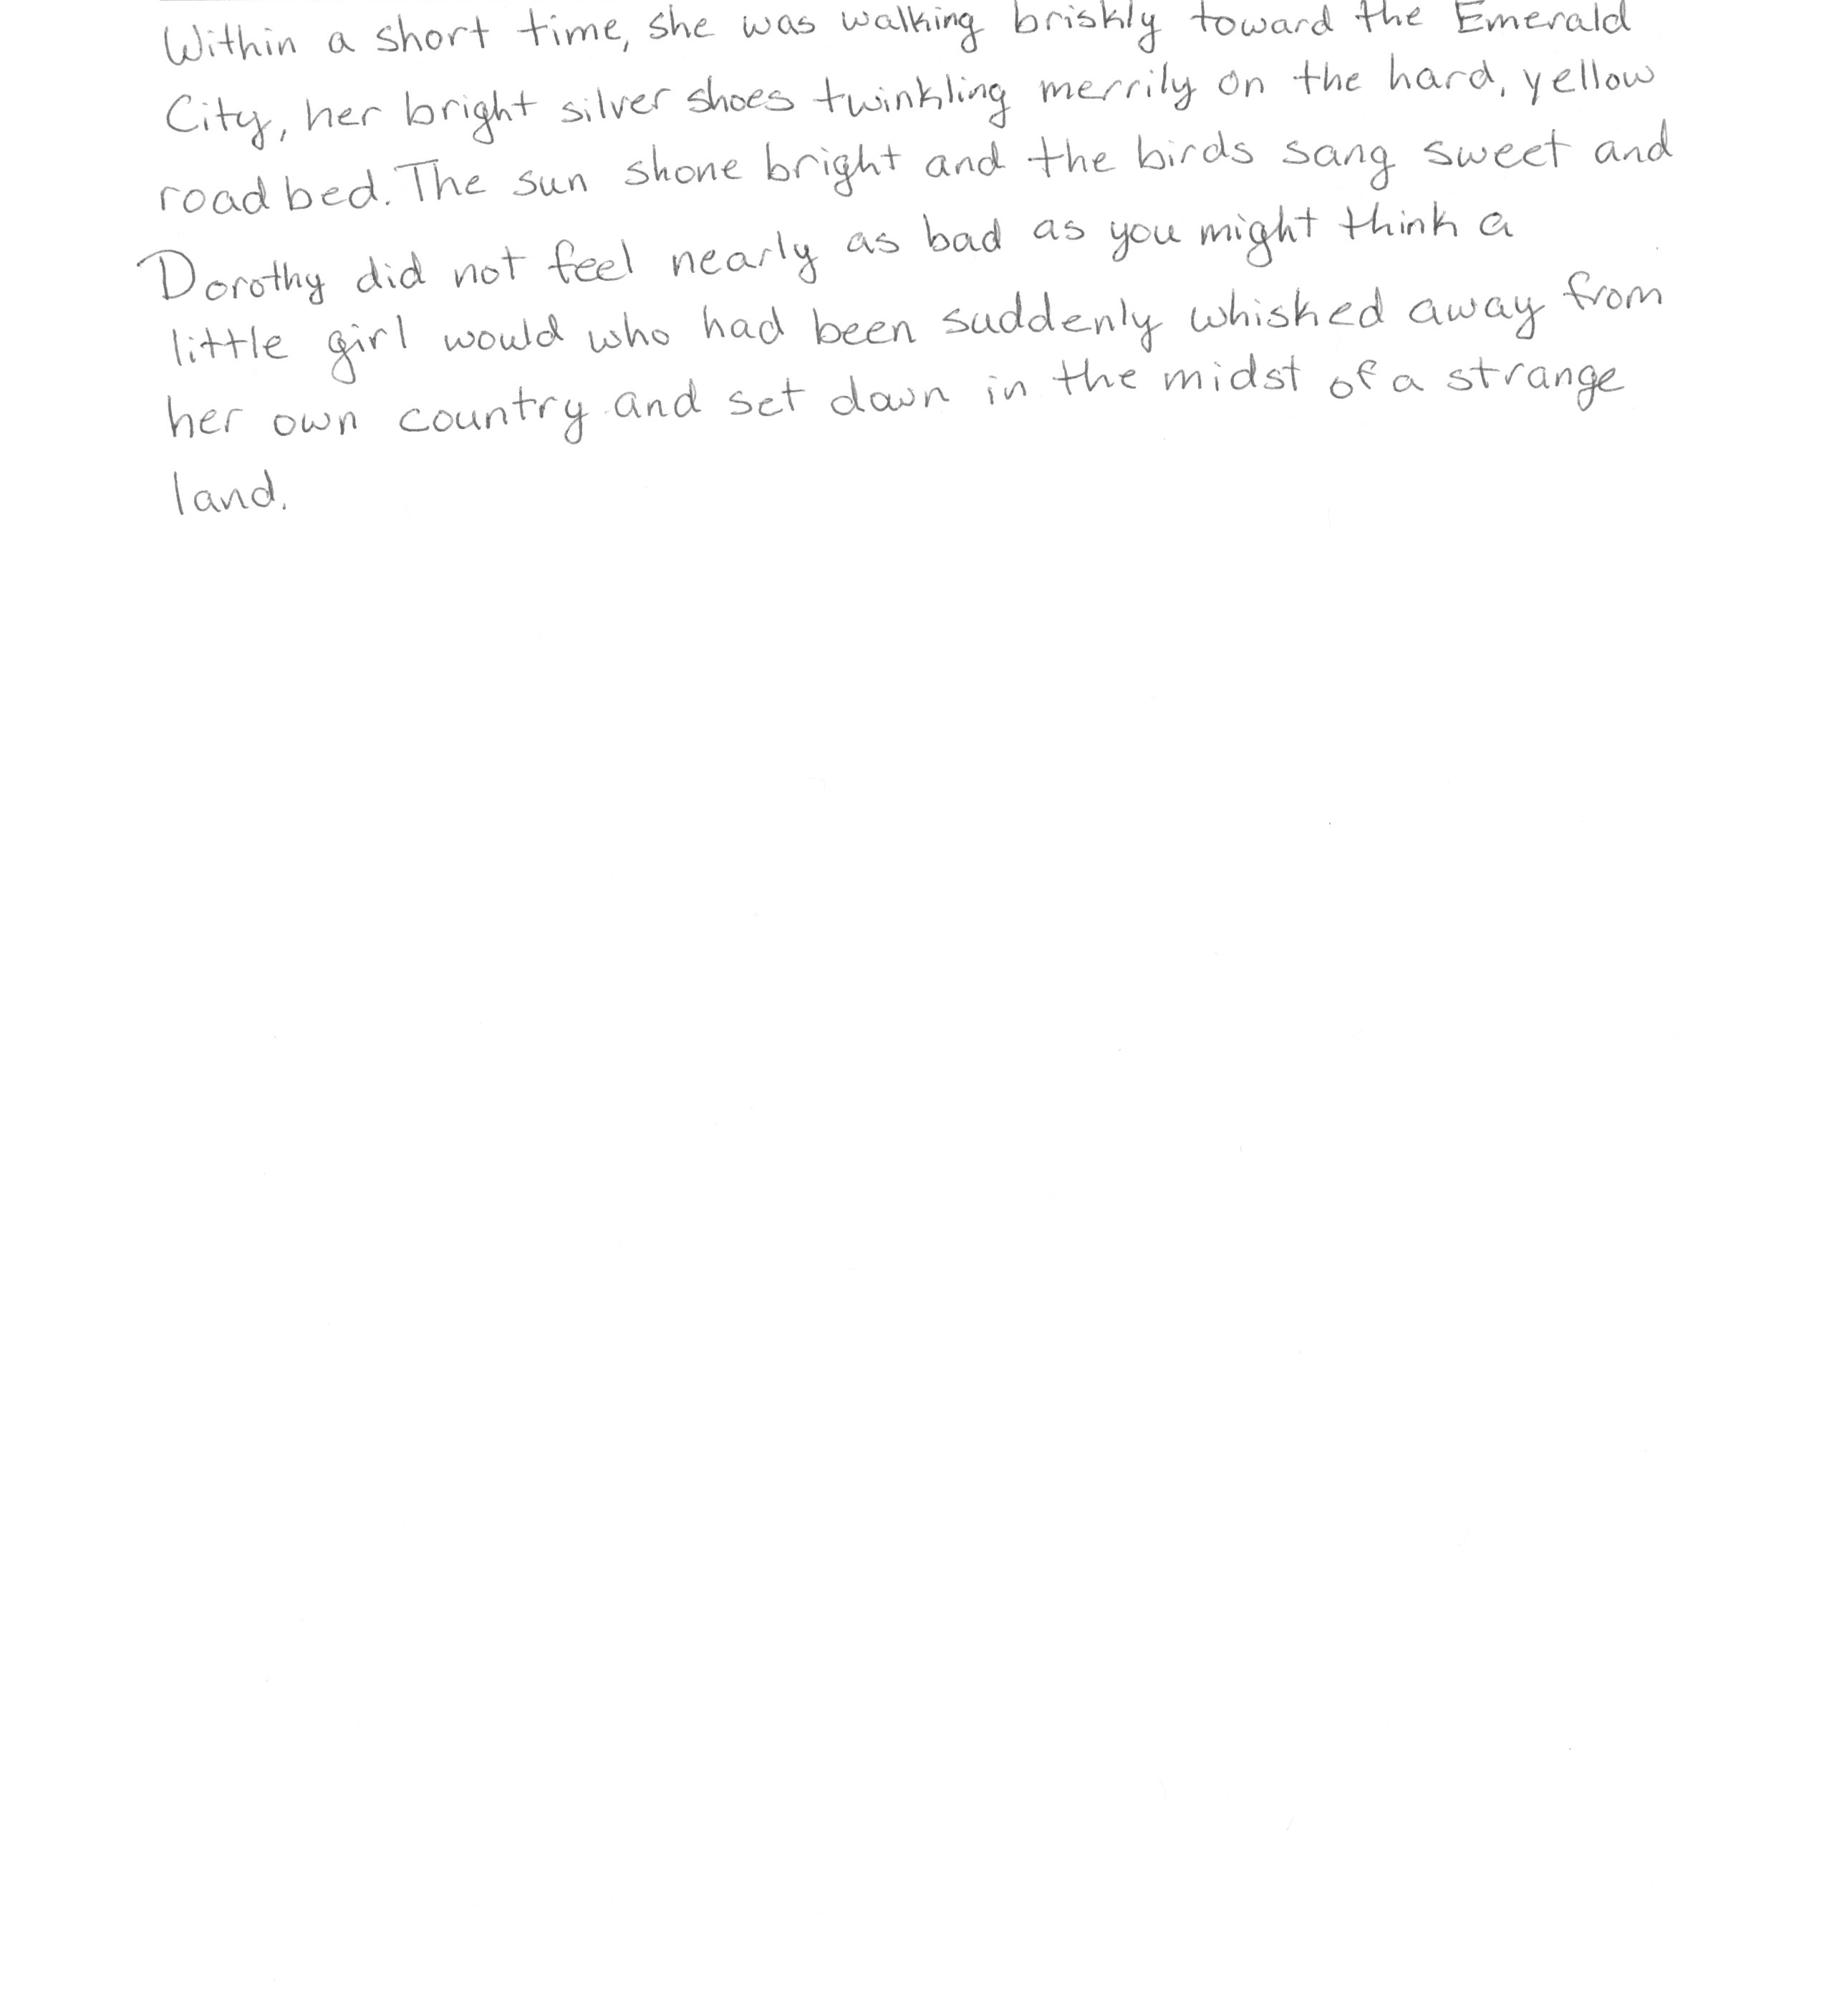 Within a short time, she was walking briskly toward the Emerald
City, her bright silver shoes twinkling merrily on the hard, yellow
roadbed. The sun shone bright and the birds sang sweet and
Dorothy did not feel nearly as bad as you might think a
little girl would who had been suddenly whisked away from
her own country and set down in the midst of a strange
land.